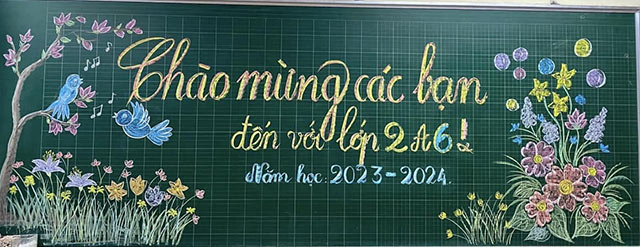 Chào mừng các bạn
đến với lớp 2A6!
Năm học: 2023-2024.